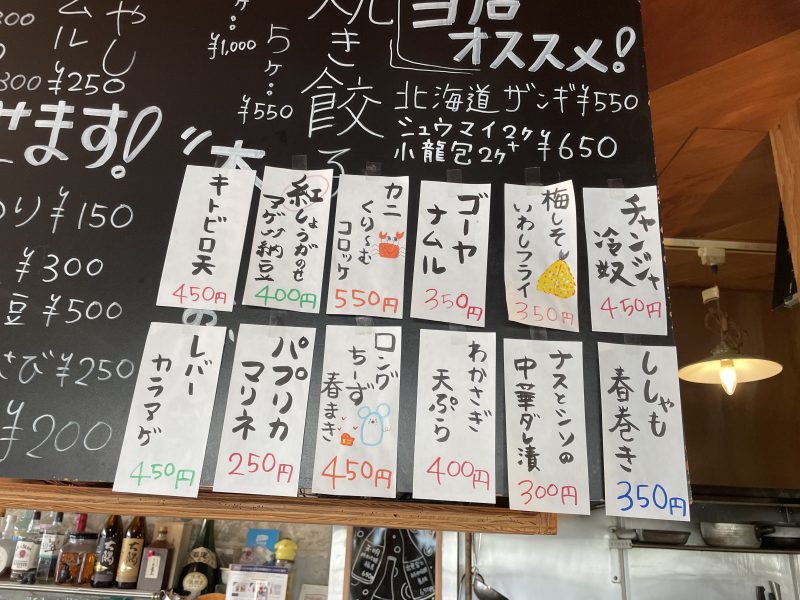 当店
オススメ！
北海道 ザンギ ¥550
シュウマイ2ケ+
小龍包2ケ ¥650
焼き餃子
5ケ… ¥550
¥1,000
やし
ムル
¥250
けます！
¥150
¥300
豆 ¥500
さび ¥250
¥200
キトビロ天
450円
紅しょうがのせ
アゲツツ納豆
400円
カニ
くり〜む
コロッケ
550円
ゴーヤ
ナムル
350円
梅しそ
いわしフライ
350円
チャンジャ
冷奴
450円
レバー
カラアゲ
450円
パプリカ
マリネ
250円
ロング
ちーず
春まき
450円
わかさぎ
天ぷら
400円
ナスとシソの
中華ダレ漬
300円
ししゃも
春巻き
350円